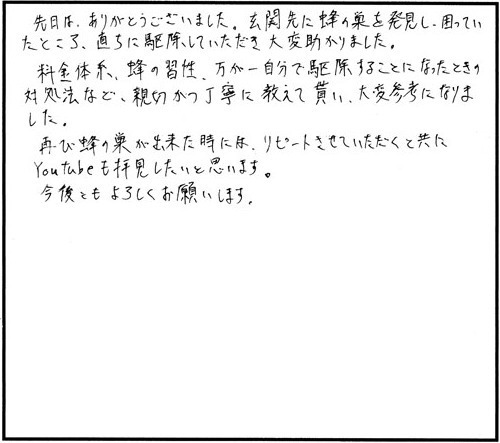 先日は、ありがとうございました。玄関先に蜂の巣を発見し、困ってい
たところ、直ちに駆除していただき大変助かりました。
料金体系、蜂の習性、万が一自分で駆除することになったときの
対処法など、親切かつ丁寧に教えて貰い、大変参考になりま
した。
再び蜂の巣が出来た時には、リピートさせていただくと共に
Youtubeも拝見したいと思います。
今後ともよろしくお願いします。